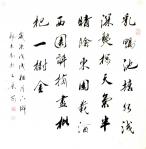 乳鴨池塘水淺
深熟梅天氣半
晴陰東園載酒
西園醉摘盡枇
杷一樹金